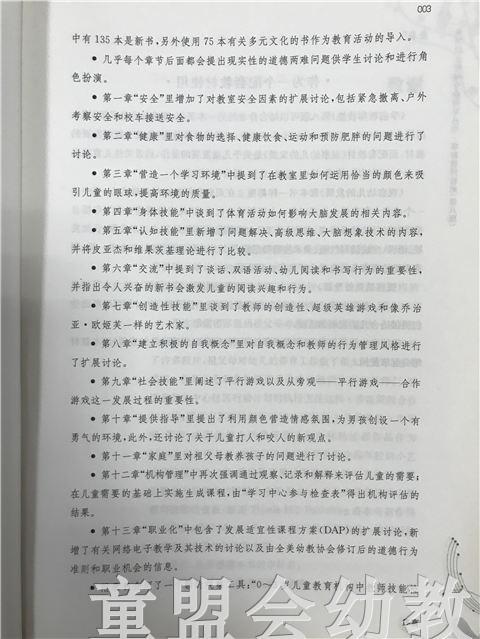 003
中有 135 本是新书,另外使用 75 本有关多元文化的书作为教育活动的导入。
• 几乎每个章节后面都会提出现实性的道德两难问题供学生讨论和进行角
色扮演。
• 第一章“安全”里增加了对教室安全因素的扩展讨论,包括紧急撤离、户外
考察安全和校车接送安全。
• 第二章“健康”里对食物的选择、健康饮食、运动和预防肥胖的问题进行了
讨论。
• 第三章“营造一个学习环境”中提到了在教室里如何运用恰当的颜色来吸
引儿童的眼球,提高环境的质量。
• 第四章“身体技能”中谈到了体育活动如何影响大脑发展的相关内容。
• 第五章“认知技能”里新增了问题解决、高级思维、大脑想象技术的内容,
并将皮亚杰和维果茨基理论进行了比较。
• 第六章“交流”中提到了谈话、双语活动、幼儿阅读和书写行为的重要性,
并指出令人兴奋的新书会激发儿童的阅读兴趣和行为。
• 第七章“创造性技能”里谈到了教师的创造性、超级英雄游戏和像乔治
亚·欧姬芙一样的艺术家。
• 第八章“建立积极的自我概念”里对自我概念和教师的行为管理风格进行
了扩展讨论。
• 第九章“社会技能”里阐述了平行游戏以及从旁观——平行游戏——合作
游戏这一发展过程的重要性。
• 第十章“提供指导”里提出了利用颜色营造情感氛围,为男孩创设一个有
勇气的环境,此外,还讨论了关于儿童打人和咬人的新观点。
• 第十一章“家庭”里对祖父母教养孩子的问题进行了讨论。
• 第十二章“机构管理”中再次强调通过观察、记录和解释来评估儿童的需要;
在儿童需要的基础上实施生成课程,由“学习中心参与检查表”得出机构评估的
结果。
• 第十三章“职业化”中包含了发展适宜性课程方案(DAP)的扩展讨论,新
增了有关网络电子教学及其技术的讨论以及由全美幼教协会修订后的道德行为
准则和职业机会的信息。
了一 工具:“0~ 岁儿童教育机构中 师技能
童盟会幼教